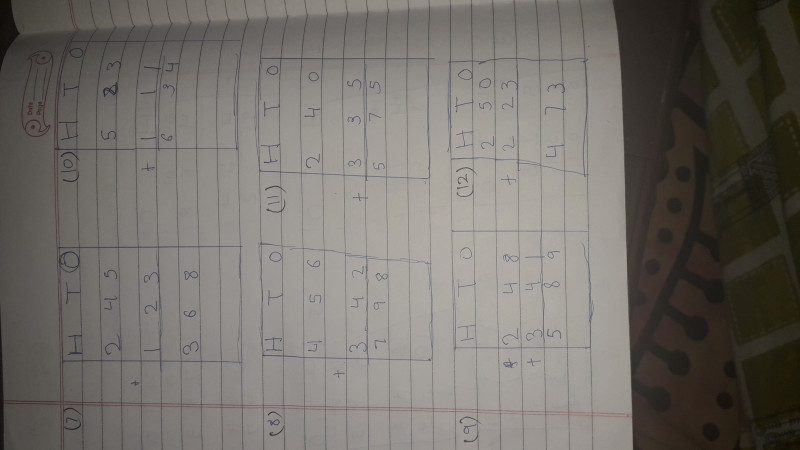 Date
Page
(7) H T O
2 4 5
+ 1 2 3
3 6 8
(10) H T O
5 2 3
+ 1 1 1
6 3 4
(8) H T O
4 5 6
+ 3 4 2
7 9 8
(11) H T O
2 4 0
+ 3 3 5
5 7 5
(9) H T O
2 4 8
+ 3 4 1
5 8 9
(12) H T O
2 5 0
+ 2 2 3
4 7 3